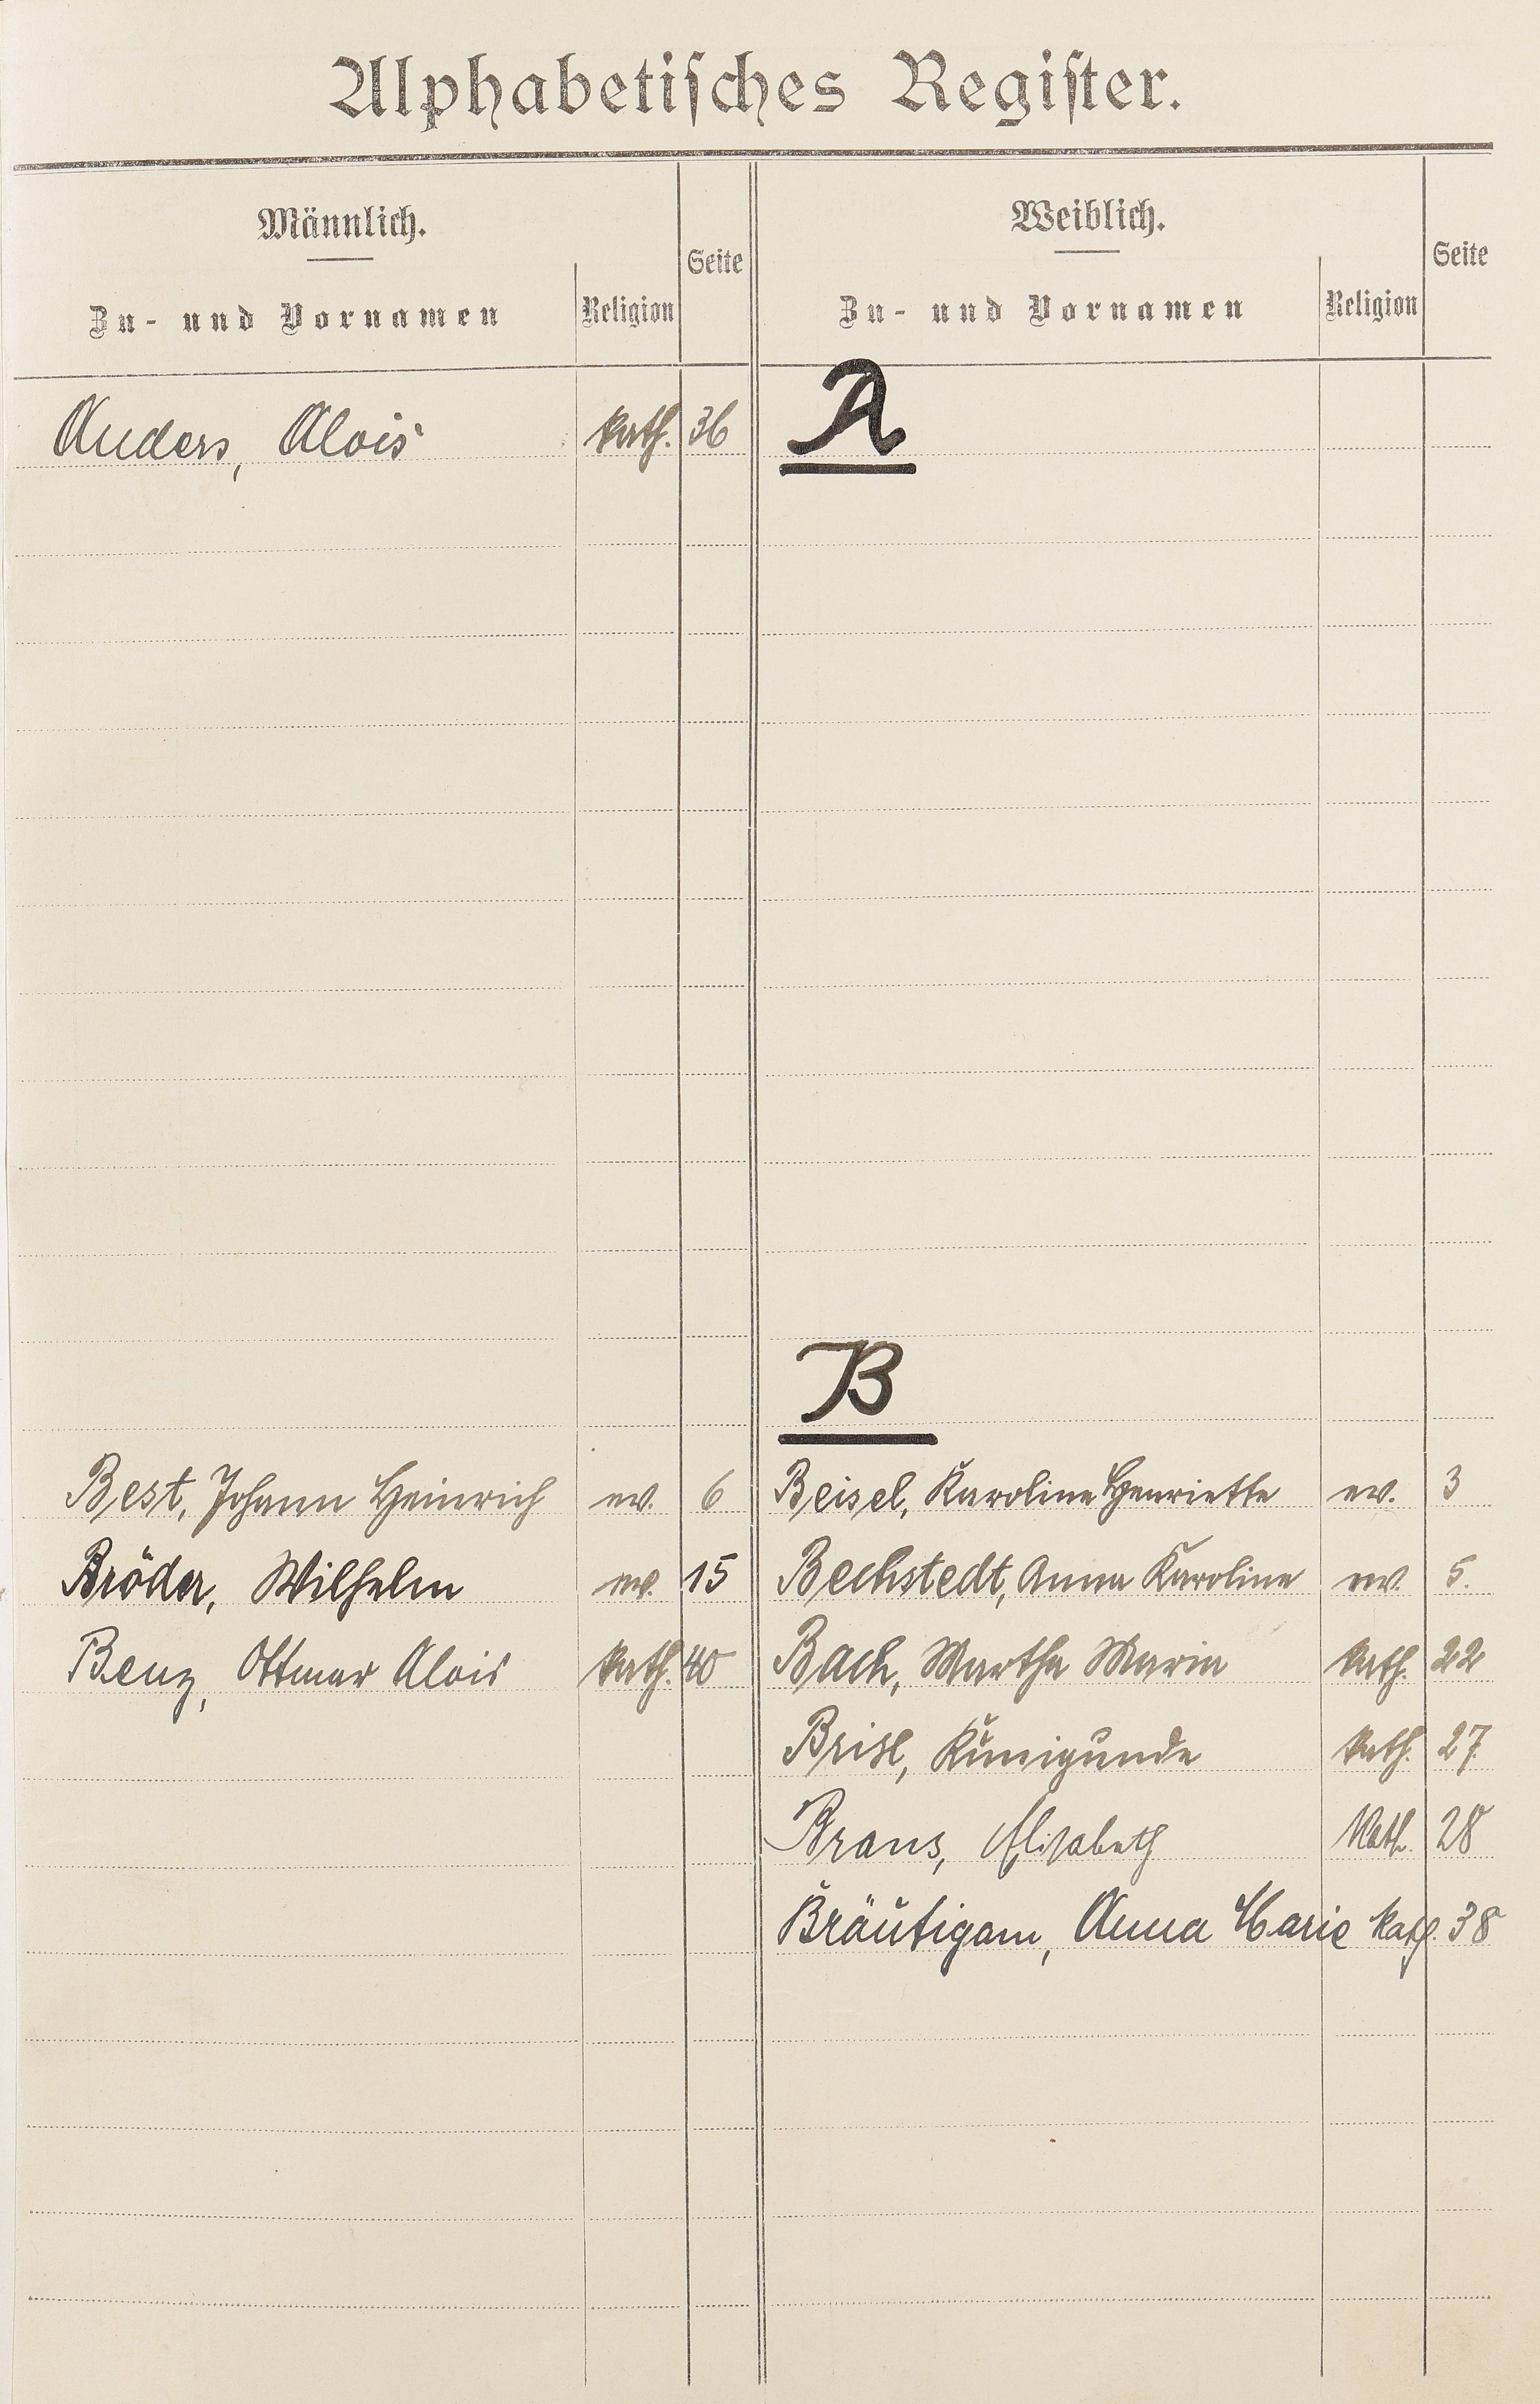 Alphabetisches Register.
Männlich.
Zu- und Vornamen
Religion
Seite
Weiblich.
Zu- und Vornamen
Religion
Seite
A
Anders, Alois kath. 36
B
Best, Johann Heinrich ev. 6
Beisel, Karoline Henriette ev. 3
Bröder, Wilhelm ev. 15
Bechstedt, Anna Karoline ev. 5.
Benz, Ottmar Alois kath. 40
Bach, Martha Maria kath. 22
Brisl, Kunigunde kath. 27
Brans, Elisabeth kath. 28
Bräutigam, Anna Marie kath. 38